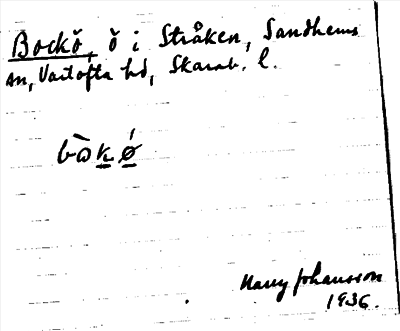 Bockö, ö i Stråken, Sandhems
sn, Vartofta hd, Skarab. l.
bòkǿ
Harry Johansson
1936.